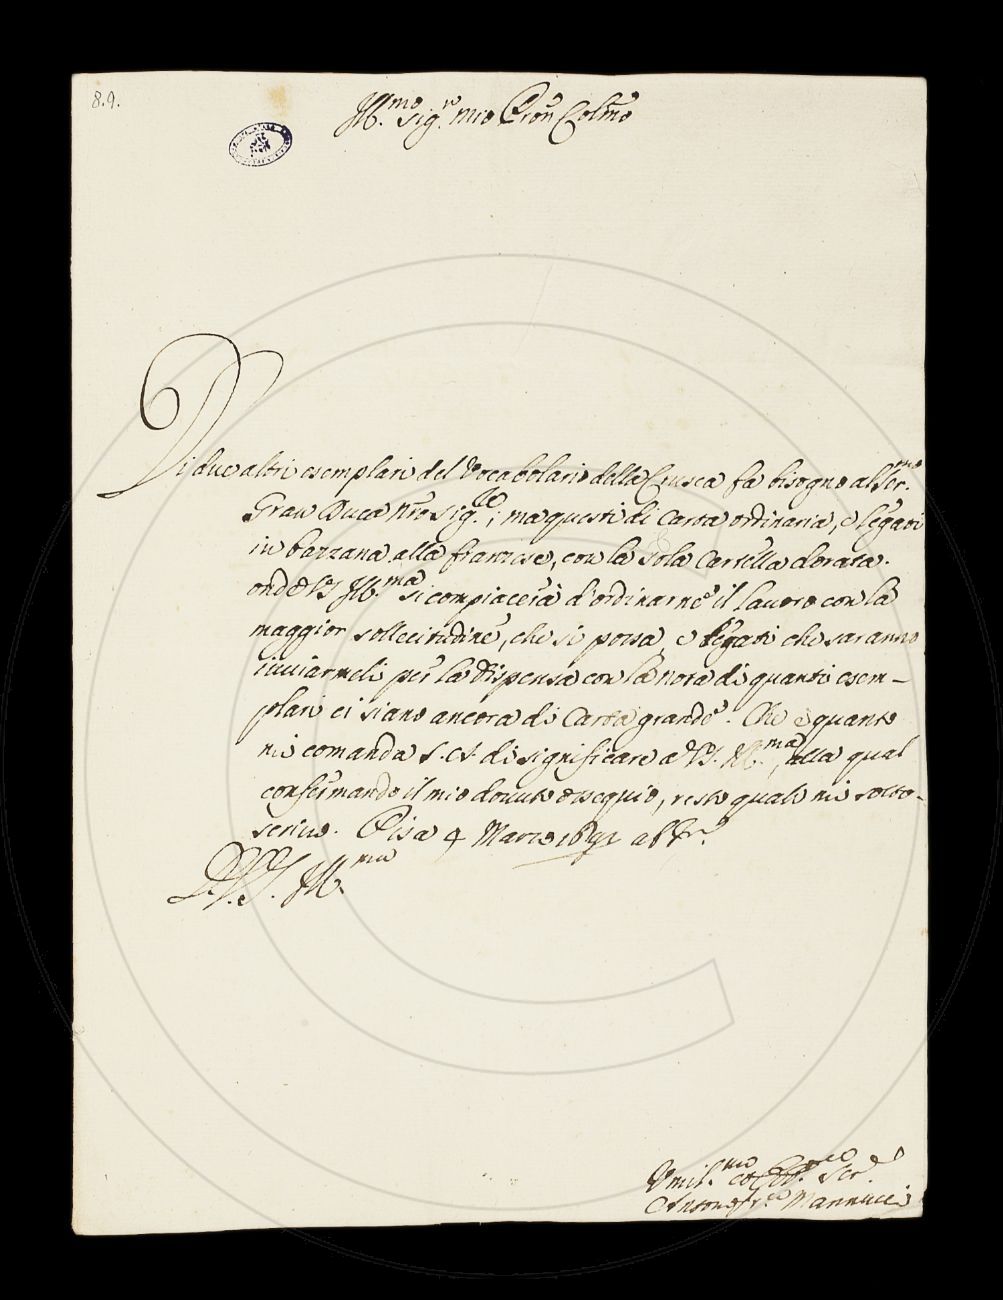 8.9.
Ill.mo Sig.re mio Pron Colmo
Di due altri esemplari del Vocabolario della Crusca fa bisogno al Ser.mo
Gran Duca Nro Sig.re; ma questi di Carta ordinaria, e legati
in bazzana alla franzese, con la sola Cartella dorata.
onde VS Ill.ma si compiacerà d'ordinarne il lavoro con la
maggior sollecitudine, che si possa, e legati che saranno
inviarmeli per la Dispensa con la nota di quanti esem-
plari ci siano ancora di Carta grande. Che è quanto
mi comanda S. A. di significare a VS. Ill.ma, alla qual
confermando il mio dovuto ossequio, resto quale mi sotto-
scrivo. Pisa 4 Marzo 1691 ab Inc.
D. V. S. Ill.ma
Umil.mo et Obb.mo Ser.re
Antonofr.co Mannucci